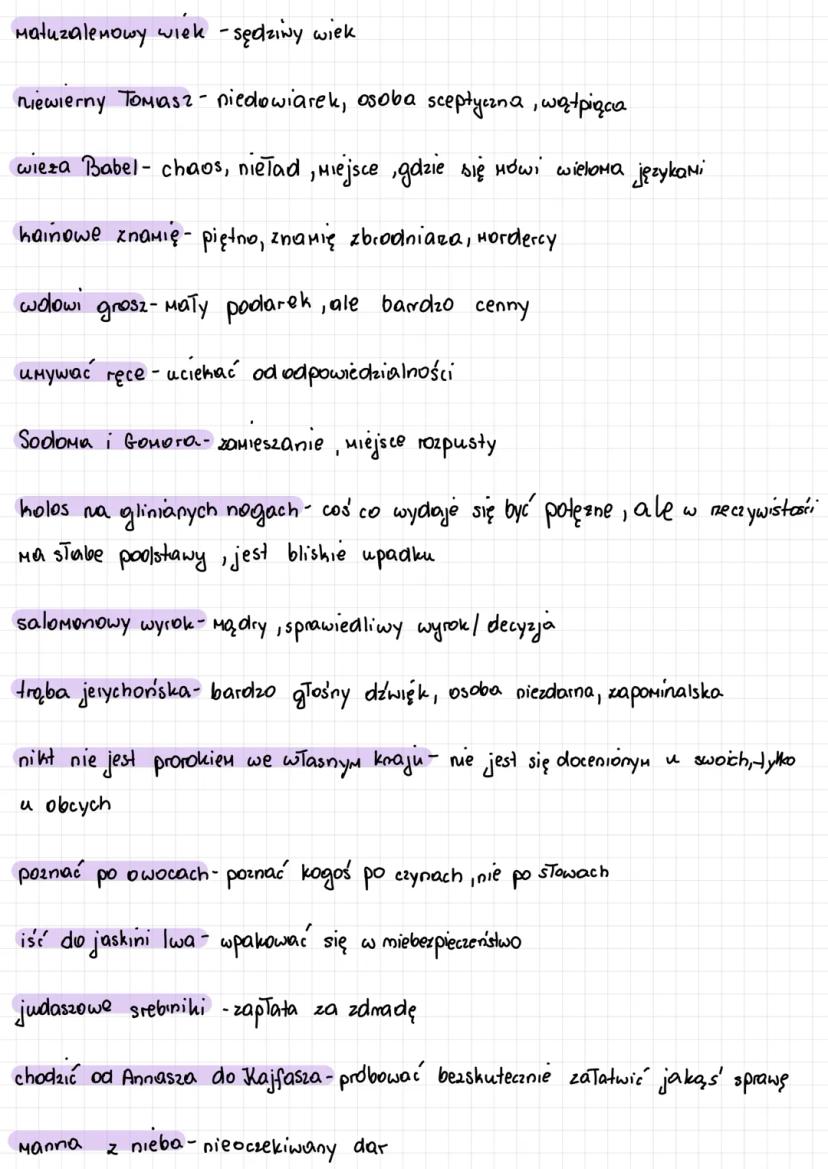 matuzalemowy wiek - sędziwy wiek
niewierny Tomasz - niedowiarek, osoba sceptyczna, wątpiąca
wieża Babel - chaos, nieład, miejsce, gdzie się mówi wieloma językami
kainowe znamię - piętno, znamię zbrodniarza, mordercy
wdowi grosz - mały podarek, ale bardzo cenny
umywać ręce - uciekać od odpowiedzialności
Sodoma i Gomora - zamieszanie, miejsce rozpusty
kolos na glinianych nogach - coś co wydaje się być potężne, ale w rzeczywistości
ma słabe podstawy, jest bliskie upadku
salomonowy wyrok - mądry, sprawiedliwy wyrok / decyzja
trąba jerychońska - bardzo głośny dźwięk, osoba niezdarna, zapominalska
nikt nie jest prorokiem we własnym kraju - nie jest się docenionym u swoich, tylko
u obcych
poznać po owocach - poznać kogoś po czynach, nie po słowach
iść do jaskini lwa - wpakować się w niebezpieczeństwo
judaszowe srebrniki - zapłata za zdradę
chodzić od Annasza do Kajfasza - próbować bezskutecznie załatwić jakąś sprawę
manna z nieba - nieoczekiwany dar